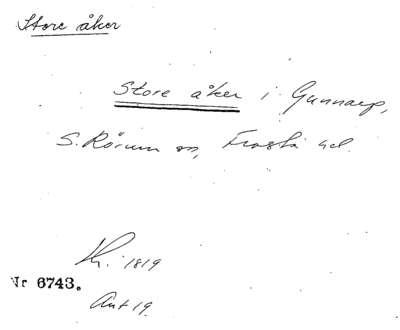 Store åker
Store åker i Gunnarp,
S. Rörum sn, Frosta hd.
1819
Nr 6743.
Ant 19.